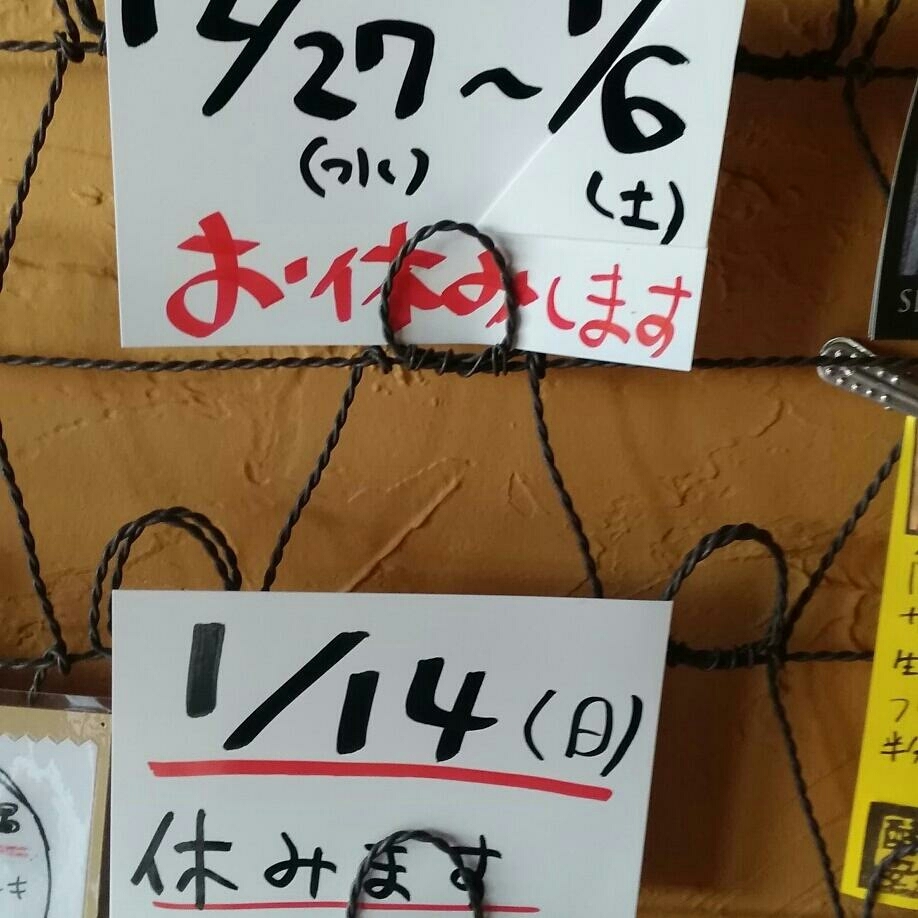 12/27～1/6
(水) (土)
お休みします
1/14(日)
休みます